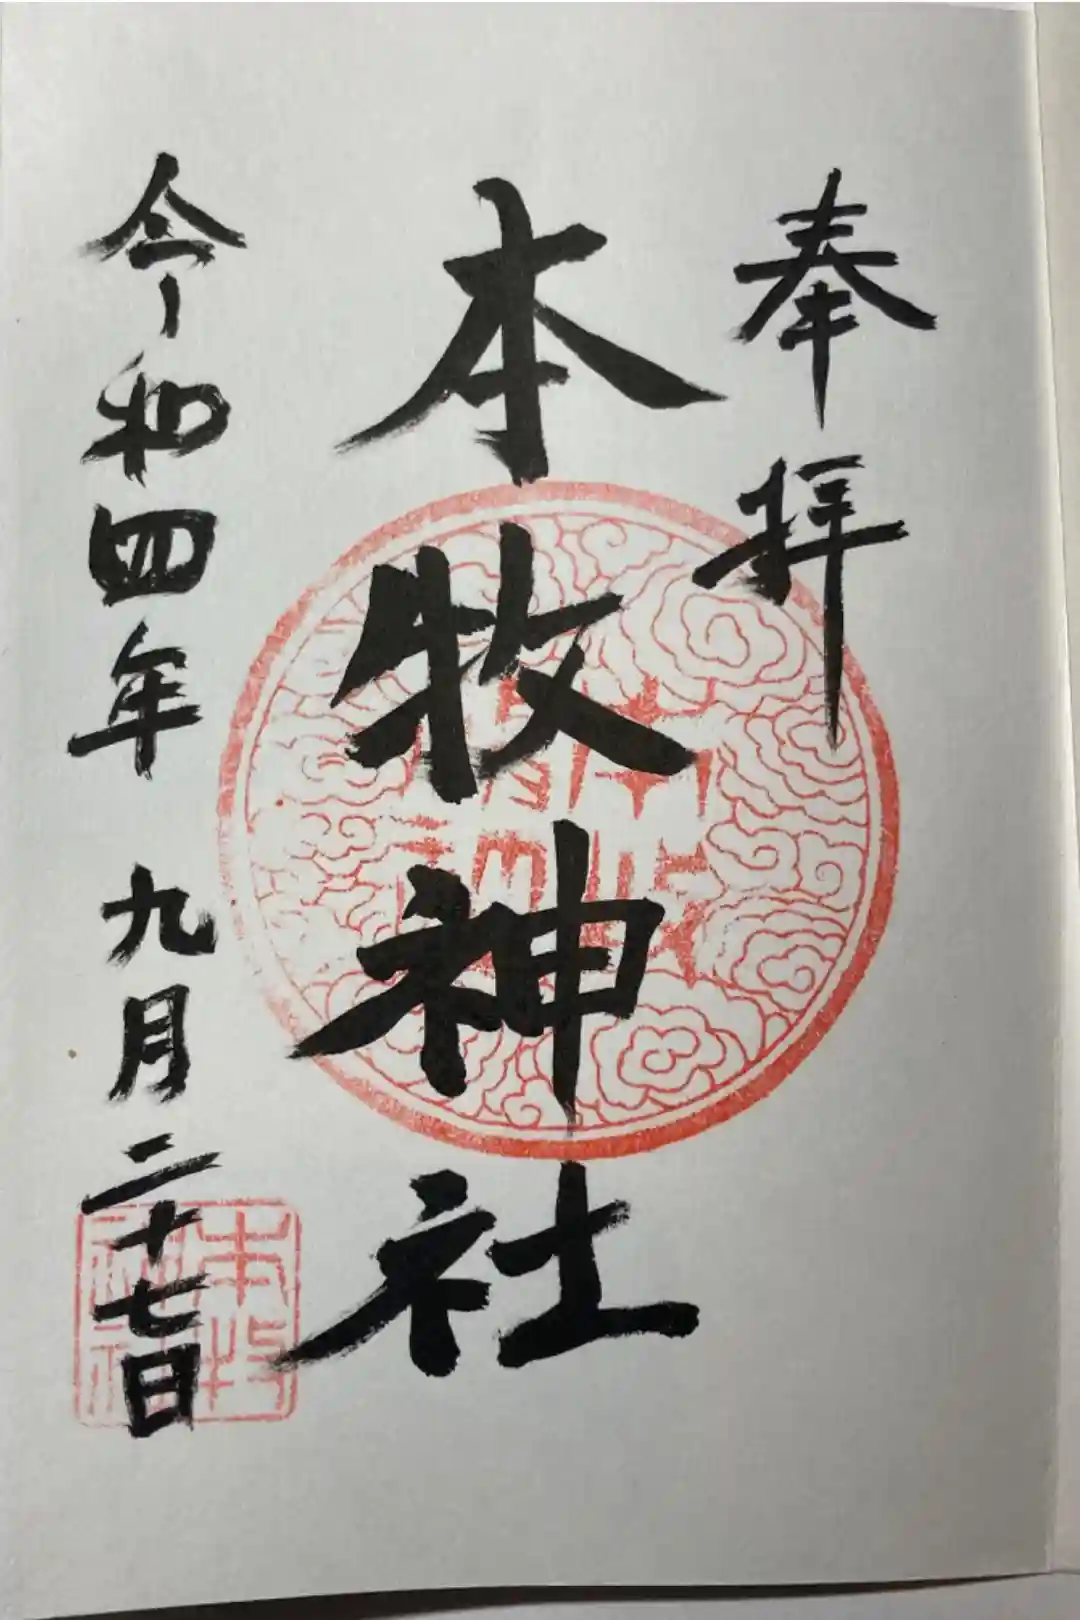 奉拝
本牧神社
令和四年 九月二十七日
本牧
神社